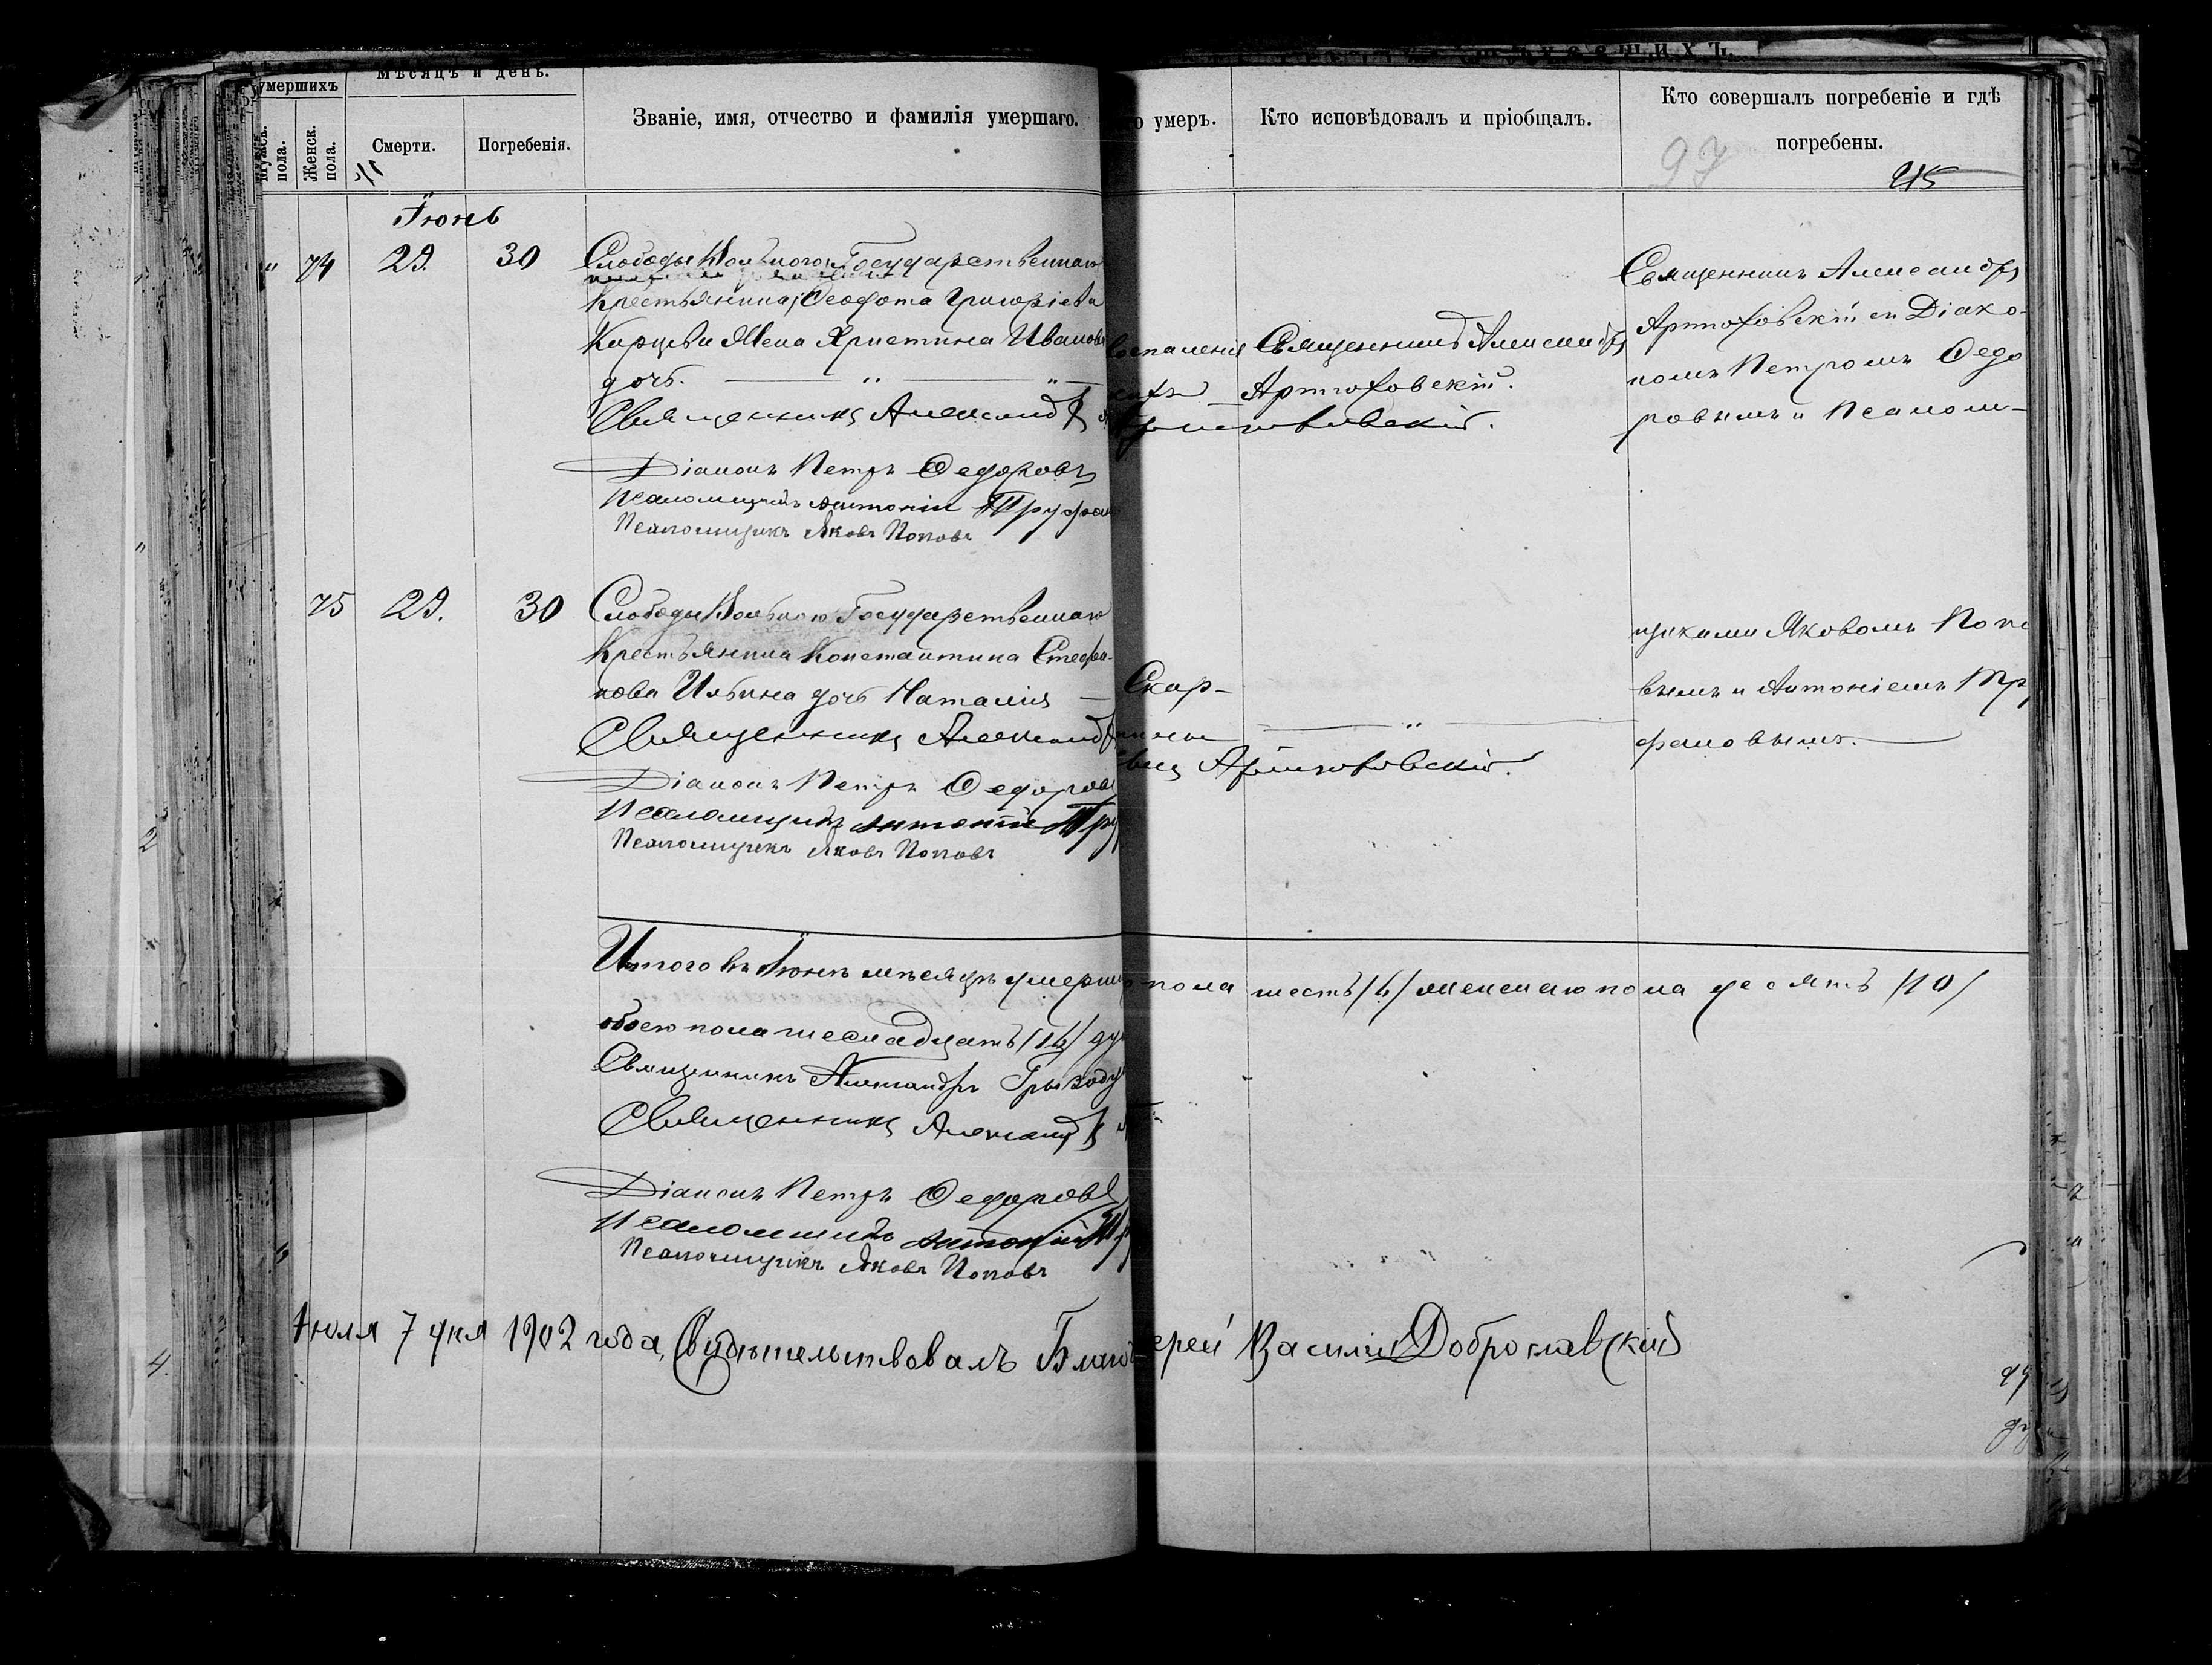 умершихъ
Мѣсяцъ и день.
Мужск. пола.
Женск. пола.
Смерти.
Погребенія.
Званіе, имя, отчество и фамилія умершаго.
о умеръ.
Кто исповѣдовалъ и пріобщалъ.
Кто совершалъ погребеніе и гдѣ
погребены.
97
Іюнь
" 74 29. 30
Слободы Государственнаго
Крестьянина Ѳеодота Григоріева
Жена Христина Иванова
дочь.
Священникъ Александръ
Діаконъ Петръ Ѳедоровъ
Псаломщикъ Антоній Труфа
Псаломщикъ Яковъ Поповъ
воспаленія
Священникъ Александръ
Артюховскій.
Артюховскій.
Священникъ Александръ
Артюховскій съ Діако-
номъ Петромъ Ѳедо
ровымъ и Псалом-
75 29. 30
Слободы Государственнаго
Крестьянина Константина Стефа-
нова Ильина дочь Наталія —
Священникъ Александръ
Діаконъ Петръ Ѳедоровъ
Псаломщикъ Антоній Тру
Псаломщикъ Яковъ Поповъ
Скар-
латины
Артюховскій.
щиками Яковомъ Попо
вымъ и Антоніемъ Тру
фановымъ.
Итого въ Іюнѣ мѣсяцѣ умерш
о пола шесть /6/ женскаго пола десять /10/
обоего пола шеснадцать /16/ ду
Священникъ Александръ
Священникъ Александръ
Діаконъ Петръ Ѳедоровъ
Псаломщикъ Антоній Тр
Псаломщикъ Яковъ Поповъ
Іюля 7 дня 1902 года, Свидѣтельствовалъ Благо
ерей Василій Доброславскій